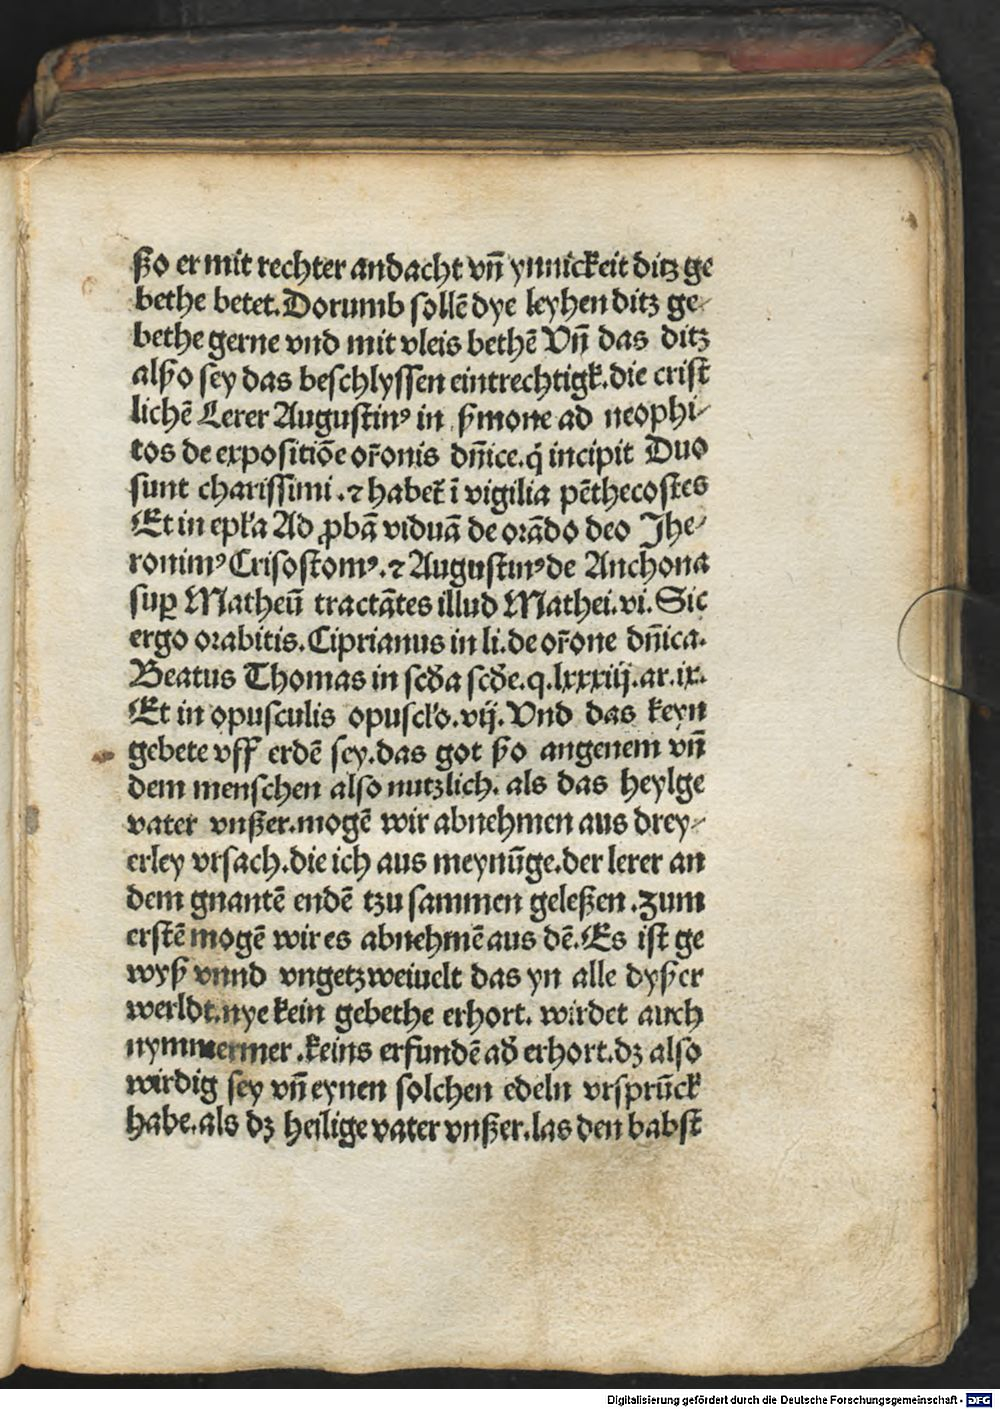 ßo er mit rechter andacht vn̄ ynnickeit ditz ge
bethe betet. Dorumb sollē dye leyhen ditz ge-
bethe gerne vnd mit vleis bethē Vn̄ das ditz
alßo sey das beschlyssen eintrechtigk. die crist
lichē Lerer Augustinꝰ in ßmone ad neophi-
tos de expositiōe or̄onis dn̄ice. q̇ incipit Duo
sunt charissimi. ⁊ habet̄ ī vigilia pēthecostes
Et in ep̄la Ad ꝓbā viduā de orādo deo Jhe-
ronimꝰ Crisostomꝰ. ⁊ Augustinꝰ de Anchona
suꝑ Matheū tractātes illud Mathei. vi. Sic
ergo orabitis. Ciprianus in li. de or̄one dn̄ica.
Beatus Thomas in scd̄a scd̄e. q. lxxxiij. ar. ix.
Et in opusculis opuscl̄o. vij. Vnd das keyn
gebete vff erdē sey. das got ßo angenem vn̄
dem menschen also nutzlich. als das heylge
vater vnßer. mogē wir abnehmen aus drey-
erley vrsach. die ich aus meynūge. der lerer an
dem gnantē endē tzu sammen geleßen. Zum
erstē mogē wir es abnehmē aus dē. Es ist ge
wyß vnnd vngetzweiuelt das yn alle dyßer
werldt. nye kein gebethe erhort. wirdet auch
nymmermer. keins erfundē ad̄ erhort. dz also
wirdig sey vn̄ eynen solchen edeln vrsprūck
habe. als dz heilige vater vnßer. las den babst
Digitalisierung gefördert durch die Deutsche Forschungsgemeinschaft - DFG